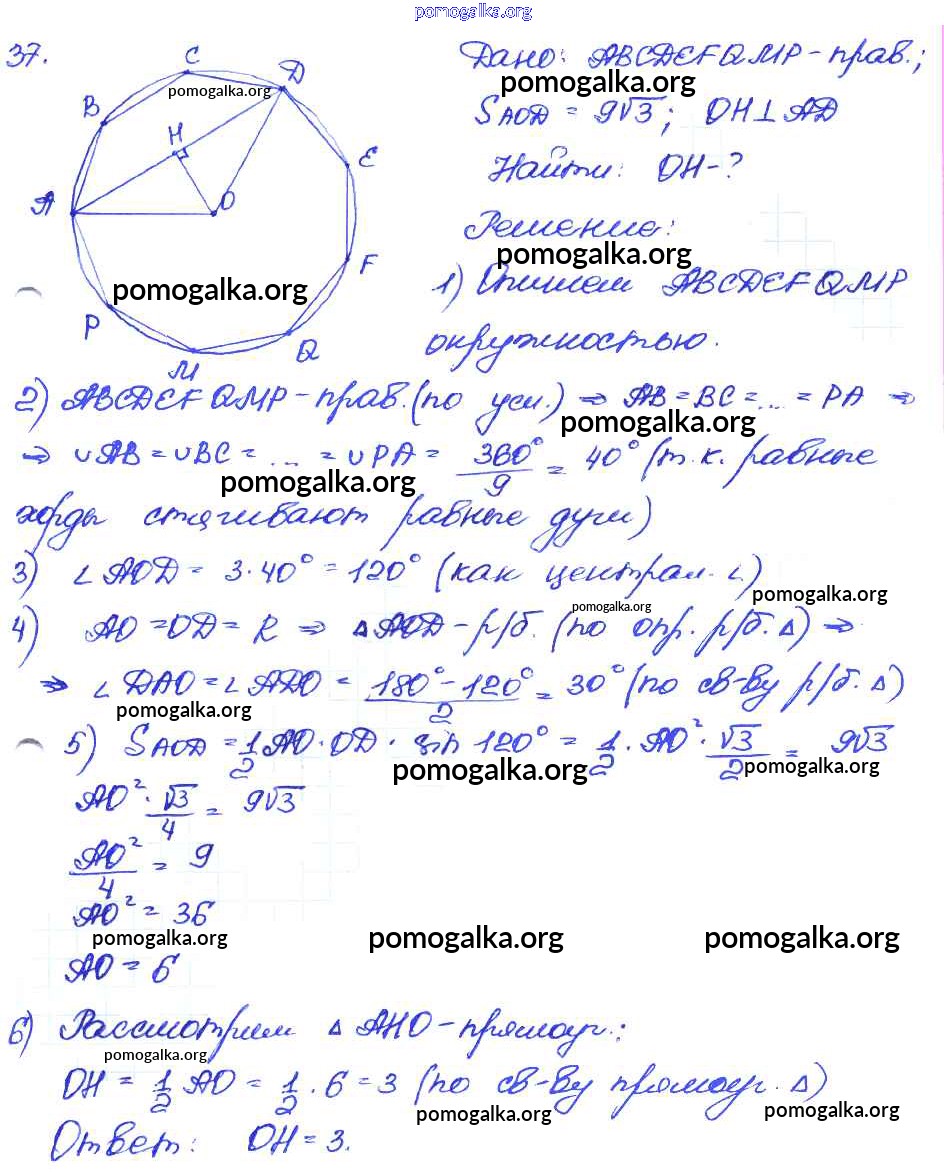 pomogalka.org
37.
C
D
B
H
E
A
O
F
P
M
Q
pomogalka.org
pomogalka.org
Дано: ABCDEFQMP - прав.;
pomogalka.org
S AOD = 9√3; OH ⊥ AD
Найти: OH - ?
Решение:
pomogalka.org
1) Опишем ABCDEFQMP
окружностью.
2) ABCDEFQMP - прав. (по усл.) ⇒ AB = BC = ... = PA ⇒
pomogalka.org
⇒ ∪AB = ∪BC = ... = ∪PA = 360°/9 = 40° (т.к. равные
pomogalka.org
хорды стягивают равные дуги)
3) ∠AOD = 3·40° = 120° (как централ. ∠)
pomogalka.org
pomogalka.org
4) AO = OD = R ⇒ △AOD - р/б. (по опр. р/б. △) ⇒
⇒ ∠DAO = ∠ADO = (180° - 120°)/2 = 30° (по св-ву р/б. △)
pomogalka.org
5) S AOD = 1/2 AO · OD · sin 120° = 1/2 · AO² · √3/2 = 9√3
pomogalka.org
pomogalka.org
AO² · √3/4 = 9√3
AO²/4 = 9
AO² = 36
pomogalka.org
pomogalka.org
pomogalka.org
AO = 6
6) Рассмотрим △ AHO - прямоуг.:
pomogalka.org
OH = 1/2 AO = 1/2 · 6 = 3 (по св-ву прямоуг. △)
pomogalka.org
pomogalka.org
Ответ: OH = 3.